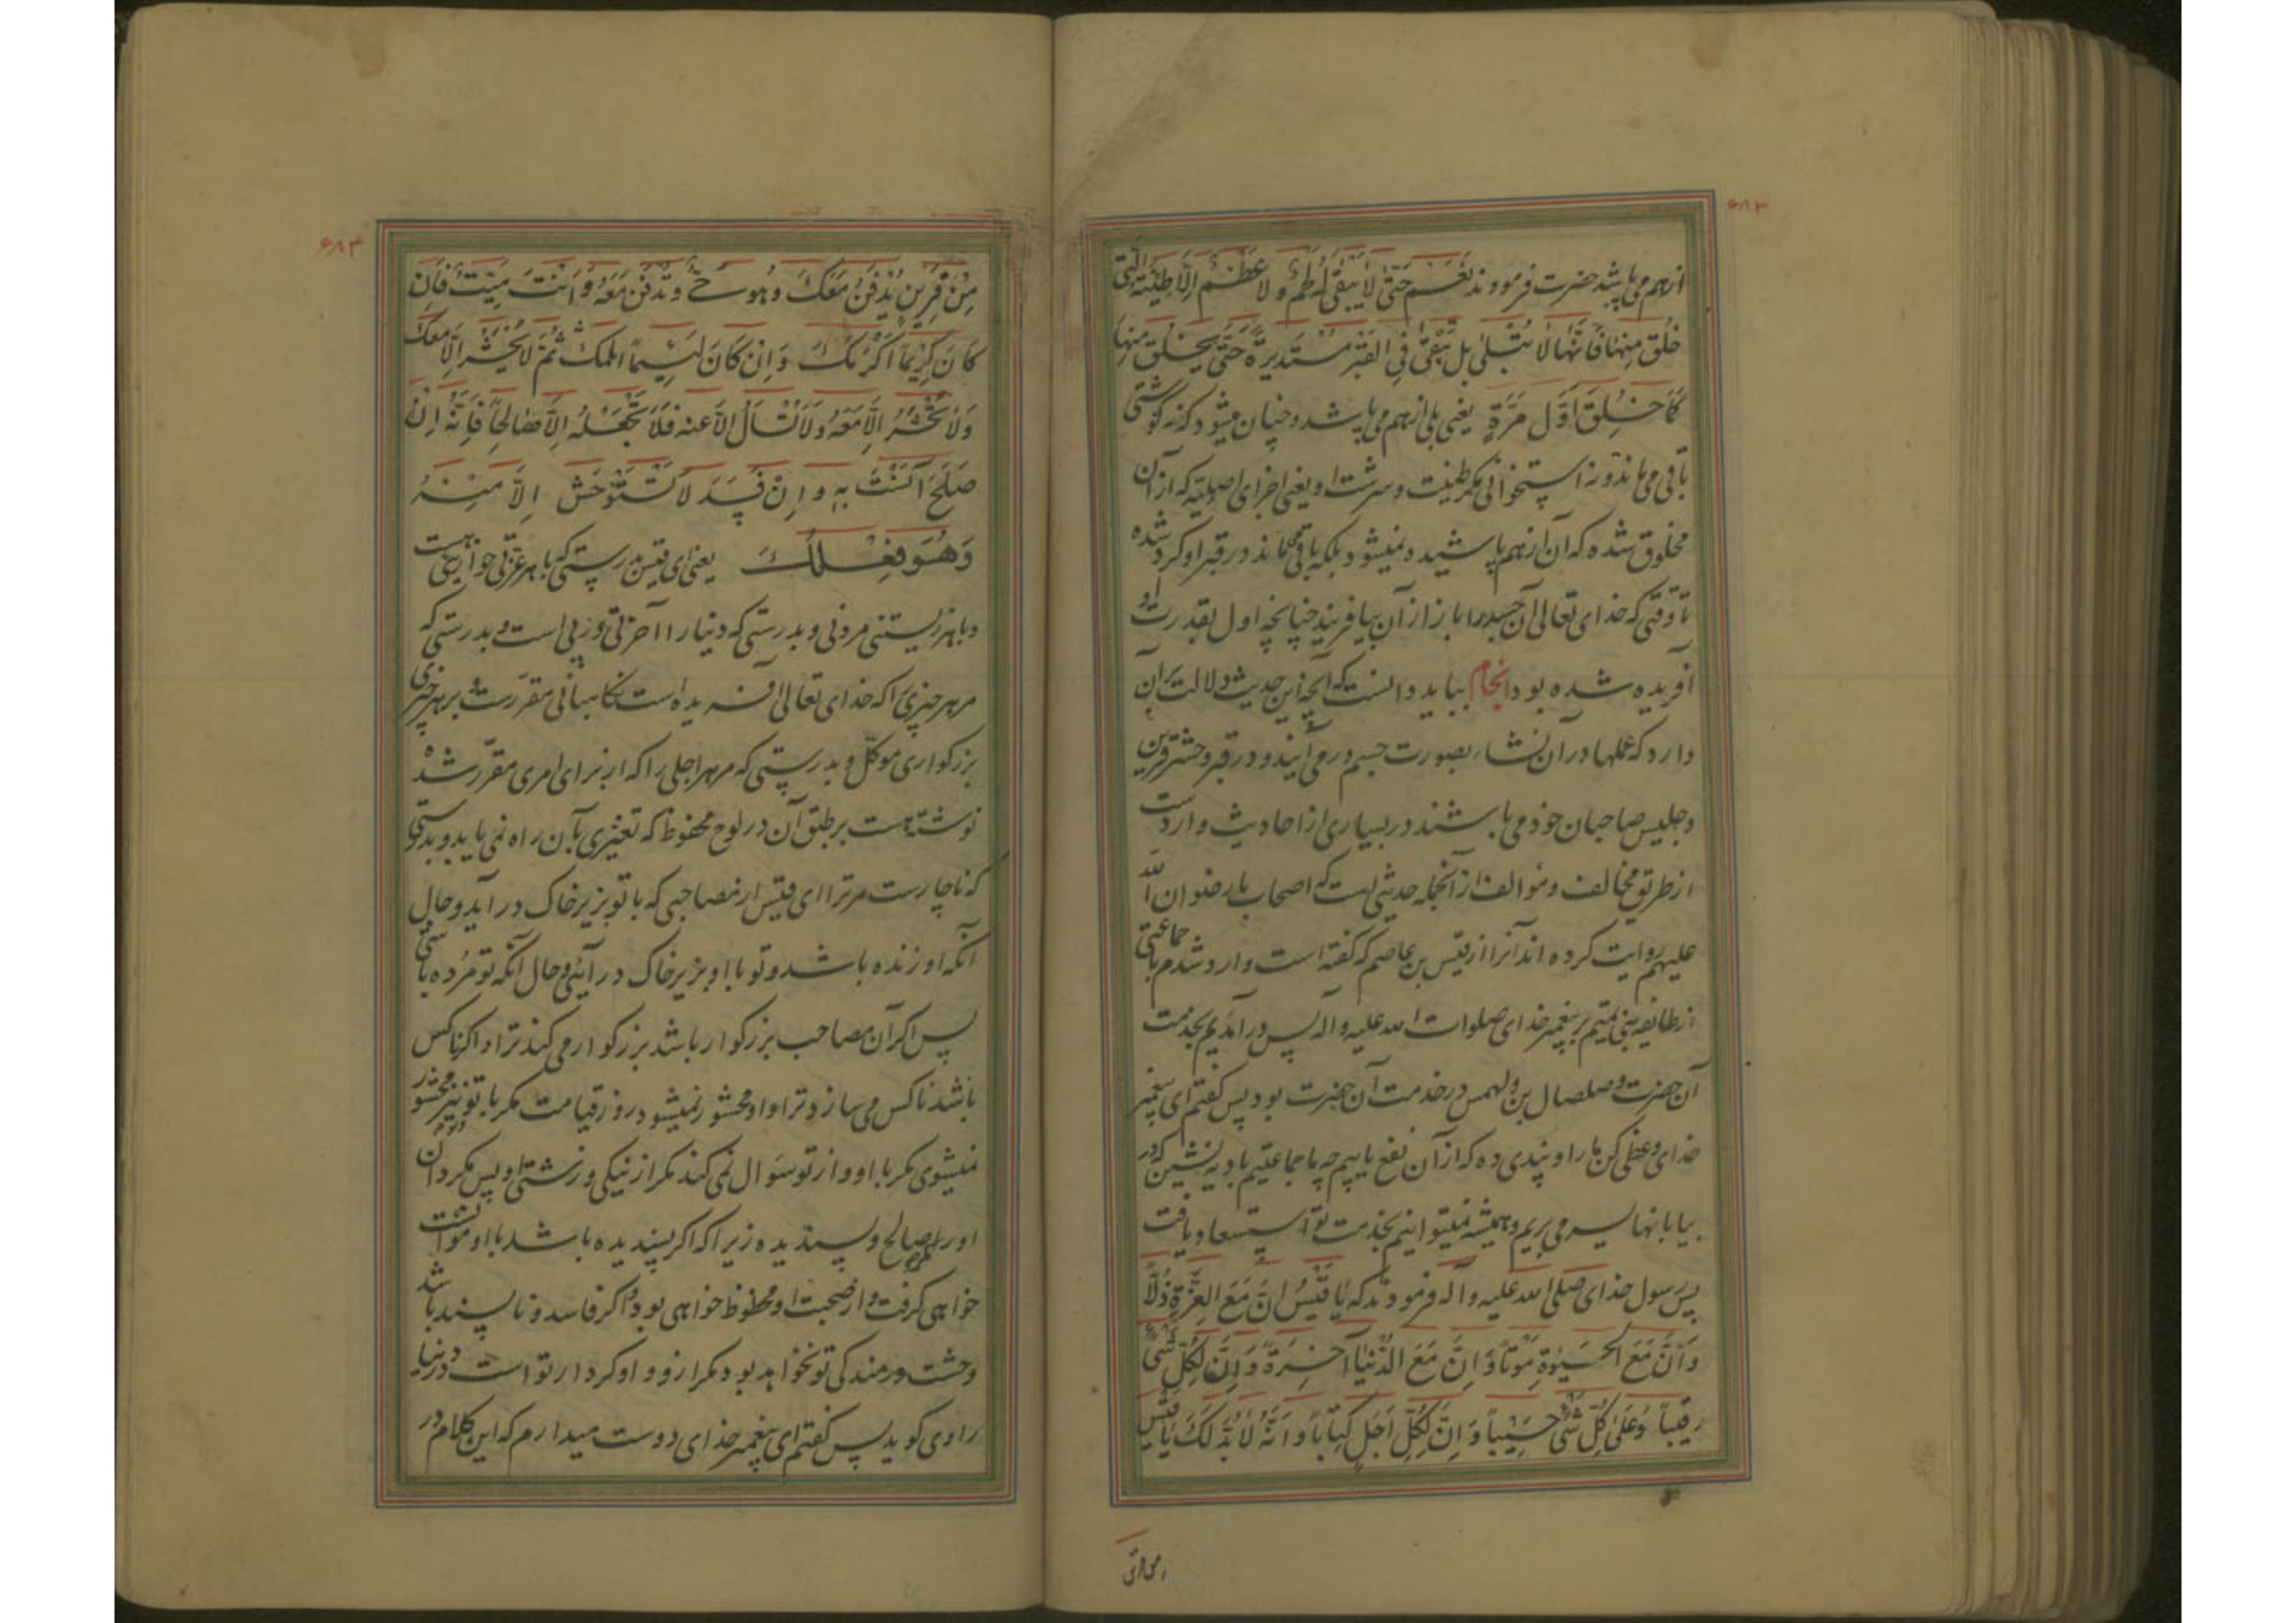 ۶۸۳
از هم می‌پاشد حضرت فرمودند نَعَم حَتّیٰ لا یَبْقیٰ لَحْمٌ و لا عَظْمٌ اِلّا طِینَتُهُ الَّتی
خُلِقَ مِنهٰا فَاِنَّهٰا لا تُبْلیٰ بل تَبْقیٰ فِی القَبْرِ مُسْتَدیرَةً حَتّیٰ یُخلَقَ مِنهٰا
کَمٰا خُلِقَ اَوَّلَ مَرَّةٍ یعنی بلی از هم می‌پاشد و چنان میشود که نه گوشتی
باقی می‌ماند و نه استخوانی مگر طینت و سرشت او یعنی اجزای اصلیّه که از آن
مخلوق شده که آن از هم پاشیده نمیشود بلکه باقی می‌ماند در قبر او گرد شده
تا وقتی که خدای تعالی آن جسد را باز از آن بیافریند چنانچه اول بقدرت او
آفریده شده بود انجام بباید دانست که آنچه این حدیث دلالت بر آن
دارد که عملها در آن نشاء بصورت جسم در می‌آیند و در قبر و حشر قرین
و جلیس صاحبان خود می‌باشند در بسیاری از احادیث وارد است
از طریق مخالف و موالف از آنجمله حدیثی است که اصحاب ما رضوان الله
علیهم روایت کرده اند آنرا از قیس بن عاصم که گفته است وارد شدم با جماعتی
از طایفه بنی تمیم بر پیغمبر خدای صلوات الله علیه و آله پس در آمدیم بخدمت
آن حضرت و صلصال بن دلهمس در خدمت آن حضرت بود پس گفتم ای پیغمبر
خدای وعظی کن ما را و پندی ده که از آن نفع یابیم چه ما جماعتیم بادیه نشین که در
بیابانها بسر می‌بریم و همیشه نمیتوانیم بخدمت تو استسعاد یافت
پس رسول خدای صلی الله علیه و آله فرمودند که یٰا قَیْسُ اِنَّ مَعَ العِزَّةِ ذُلّاً
وَ اَنَّ مَعَ الحَیٰوةِ مَوْتاً وَ اِنَّ مَعَ الدُّنْیٰا آخِرَةً وَ اِنَّ لِکُلِّ شَیْءٍ
رقیباً وَ عَلیٰ کُلِّ شَیْءٍ حَسیباً وَ اِنَّ لِکُلِّ اَجَلٍ کِتٰاباً وَ اَنَّهُ لٰا بُدَّ لَکَ یٰا قَیس
۶۸۴
مِنْ قَرینٍ یُدْفَنُ مَعَکَ وَ هُوَ حَیٌّ وَ تُدْفَنُ مَعَهُ وَ اَنْتَ مَیِّتٌ فَاِن
کٰانَ کَریماً اَکْرَمَکَ وَ اِنْ کٰانَ لَئیماً اسلمک ثُمَّ لا یُحْشَرُ اِلّا مَعَکَ
وَ لا تُحْشَرُ اِلّا مَعَهُ وَ لا تُسْأَلُ اِلّا عنه فَلا تَجْعَلْهُ اِلّا صٰالِحاً فَاِنَّهُ اِنْ
صَلَحَ آنَسْتَ بِهِ وَ اِنْ فَسَدَ لا تَسْتَوْحِشُ اِلّا مِنْهُ
وَ هُوَ فِعْلُکَ یعنی ای قیس بدرستی که با هر عزّتی خواریی هست
و با هر زیستنی مردنی و بدرستی که دنیا را آخرتی در پی است و بدرستی که
مر هر چیزی را که خدای تعالی آفریده است نگاهبانی مقرّرست و بر هر چیزی
بزرگواری موکّل و بدرستی که مر هر اجلی را که از برای امری مقرّر شده
نوشته هست بر طبق آن در لوح محفوظ که تغییری بآن راه نمی‌یابد و بدرستی
که ناچارست مر ترا ای قیس از مصاحبی که با تو بزیر خاک در آید و حال
آنکه او زنده باشد و تو با او بزیر خاک در آیی و حال آنکه تو مُرده باشی
پس اگر آن مصاحب بزرگوار باشد بزرگوار می‌کند ترا و اگر ناکس
باشد ناکس می‌سازد ترا و او محشور نمیشود در روز قیامت مگر با تو و تو نیز محشور
نمیشوی مگر با او و از تو سؤال نمی‌کند مگر از نیکی و زشتی او پس مگردان
او را مگر صالح و پسندیده زیرا که اگر پسندیده باشد با او موانست
خواهی گرفت و از صحبت او محظوظ خواهی بود و اگر فاسد و ناپسند باشد
وحشت و رمندگی تو نخواهد بود مگر از و و او کردار تو است در دنیا
راوی گوید پس گفتم ای پیغمبر خدای دوست میدارم که این کلام در